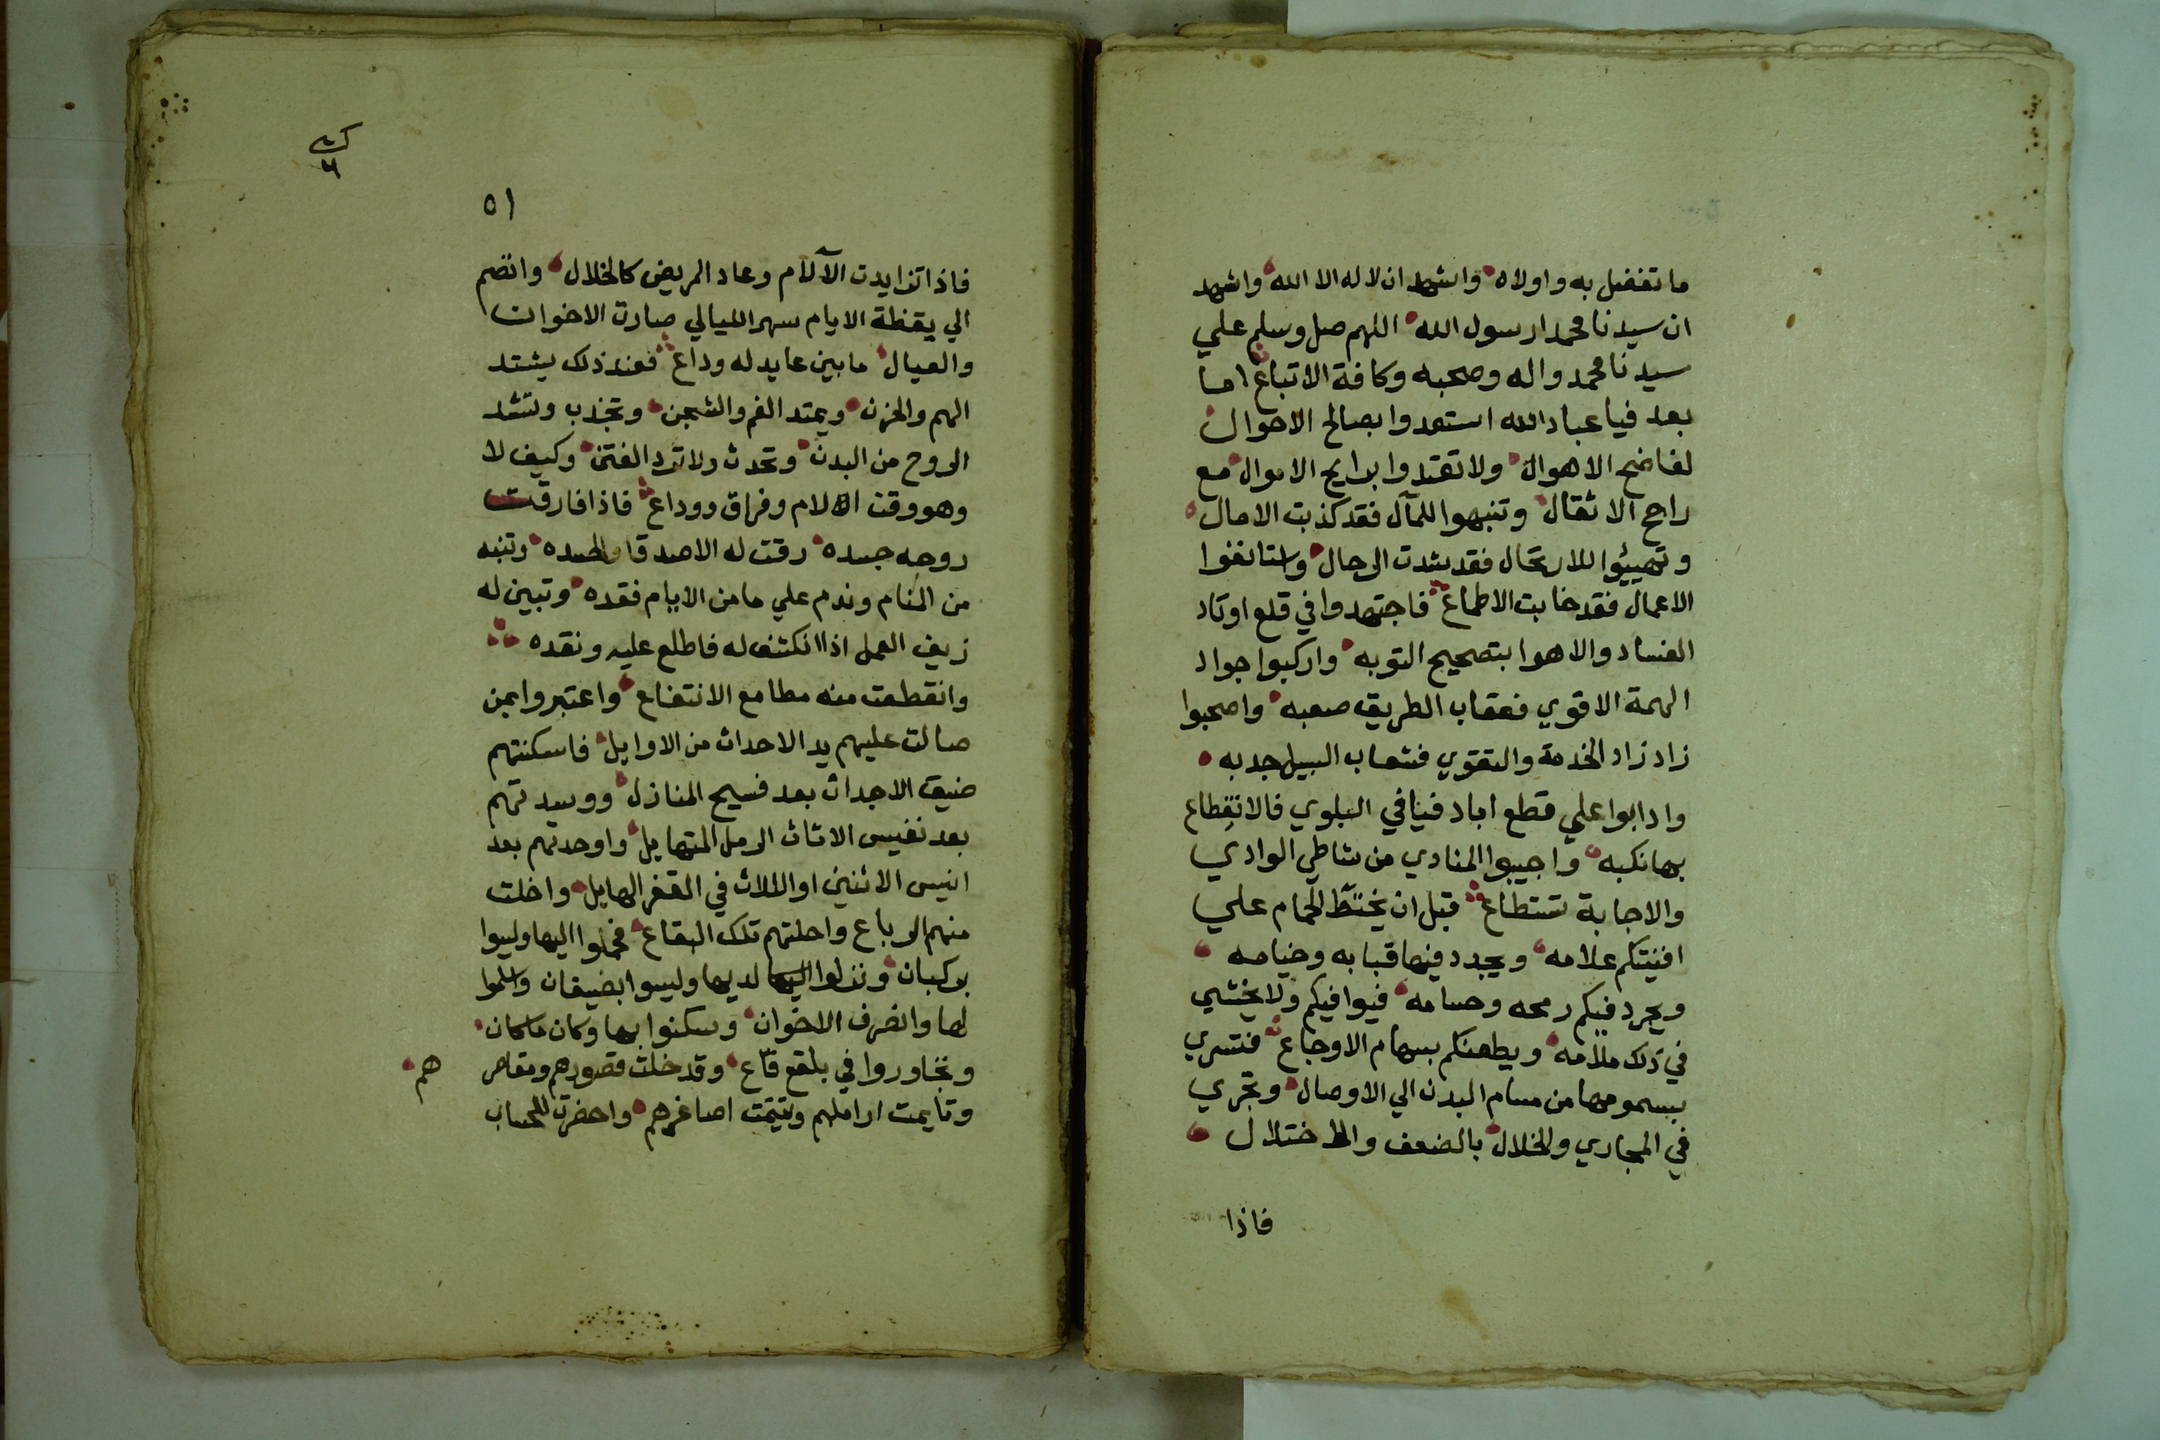 ما تفضل به واولاه واشهد ان لا اله الا الله واشهد
ان سيدنا محمدا رسول الله اللهم صل وسلم علي
سيدنا محمد واله وصحبه وكافة الاتباع اما
بعد فيا عباد الله استعدوا بصالح الاحوال
لفاضح الاهوال ولا تقتدوا برايح الاموال مع
راجح الاثقال وتنبهوا للمآل فقد كذبت الامال
وتهيئوا للارتحال فقد شدت الرحال واستانفوا
الاعمال فقد خابت الاطماع فاجتهدوا في قلع اوتاد
الفساد والاهوا بتصحيح التوبه واركبوا جواد
الهمة الاقوي فعقاب الطريق صعبه واصحبوا
زاد زاد الخدمة والتقوي فشعاب السبيل جدبه
وادابوا علي قطع اباد فيافي البلوي فالانقطاع
بها نكبه واجيبوا المنادي من شاطي الوادي
والاجابة تستطاع قبل ان يختط الحمام علي
افنيتكم علامه ويجدد فيها قبابه وخيامه
ويجرد فيكم رمحه وحسامه فيوافيكم ولا يخشي
في ذلك ملامه ويطعنكم بسهام الاوجاع فتسري
بسمومها من مسام البدن الي الاوصال وتجري
في المجاري والخلال بالضعف والاختلال
فاذا
٥١
فاذا تزايدت الآلام وعاد المريض كالخلال وانضم
الي يقظة الايام سهر الليالي صارت الاخوان
والعيال ما بين عايد له وداع فعند ذلك يشتد
الهم والحزن ويمتد الغم والشجن وتجذب وتشد
الروح من البدن وتحدث ولا ترد الفتن وكيف لا
وهو وقت الالام وفراق ووداع فاذا فارقت
روحه جسده رقت له الاصدقا والحسده وتنبه
من المنام وندم علي ما من الايام فقده وتبين له
زيف العمل اذا انكشف له فاطلع عليه ونقده
وانقطعت منه مطامع الانتفاع واعتبروا بمن
صالت عليهم يد الاحداث من الاوايل فاسكنتهم
ضيق الاجداث بعد فسيح المنازل ووسدتهم
بعد نفيس الاثاث الرمل المتهايل واوحدتهم بعد
انيس الاثنين او الثلاث في القفر الهايل واخلت
منهم الرباع واحلتهم تلك البقاع فحملوا اليها وليسوا
بركبان ونزلوا اليها لديها وليسوا بضيفان واسلموا
لها وانصرف الاخوان وسكنوا بها وكان ما كان
وتجاوروا في بلقع قاع وقد خلت قصورهم ومقاصر هم
وتايمت اراملهم وتيتمت اصاغرهم واحضرت للحساب